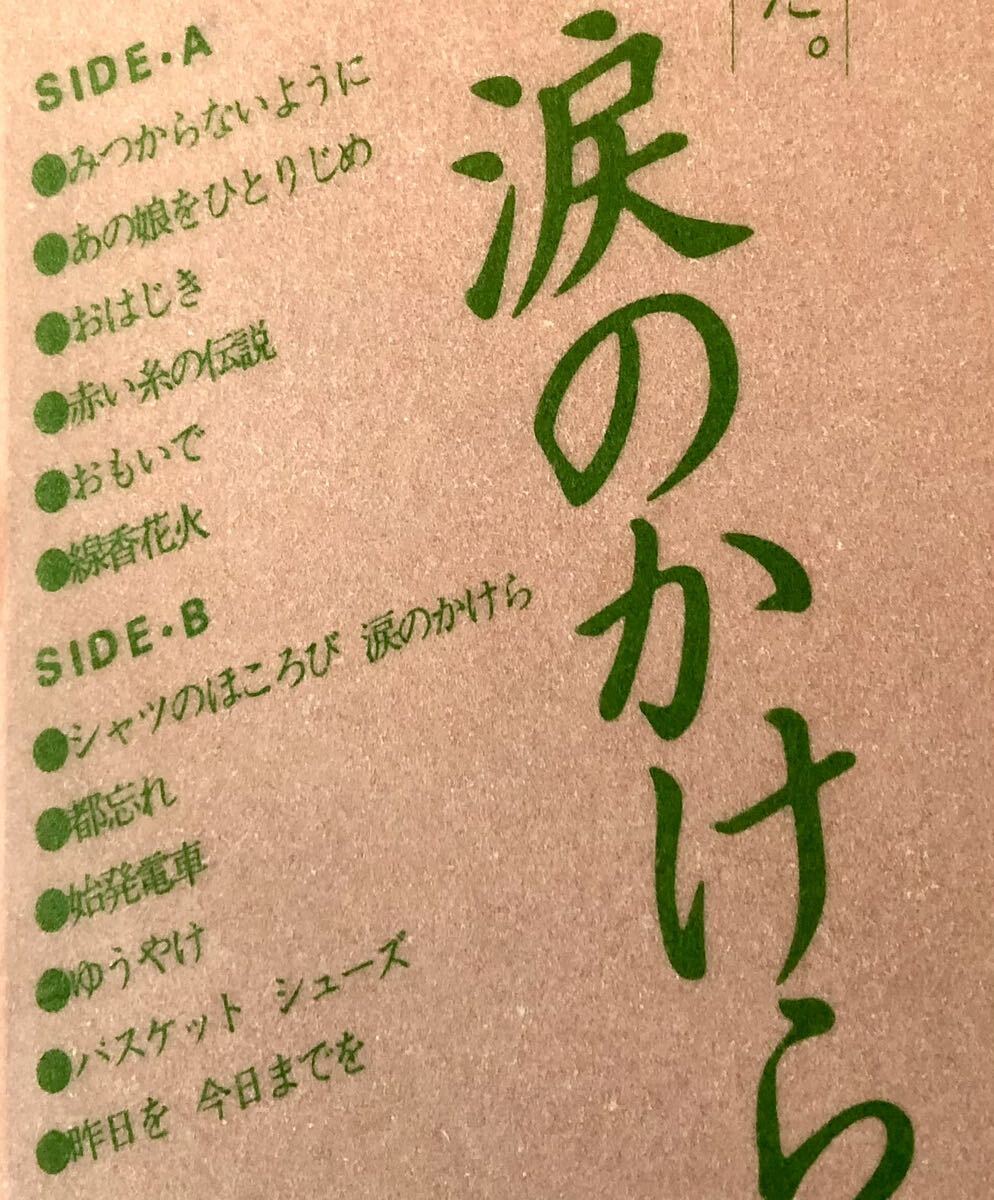 た。
涙のかけら
SIDE・A
●みつからないように
●あの娘をひとりじめ
●おはじき
●赤い糸の伝説
●おもいで
●線香花火
SIDE・B
●シャツのほころび 涙のかけら
●都忘れ
●始発電車
●ゆうやけ
●バスケット シューズ
●昨日を 今日までを